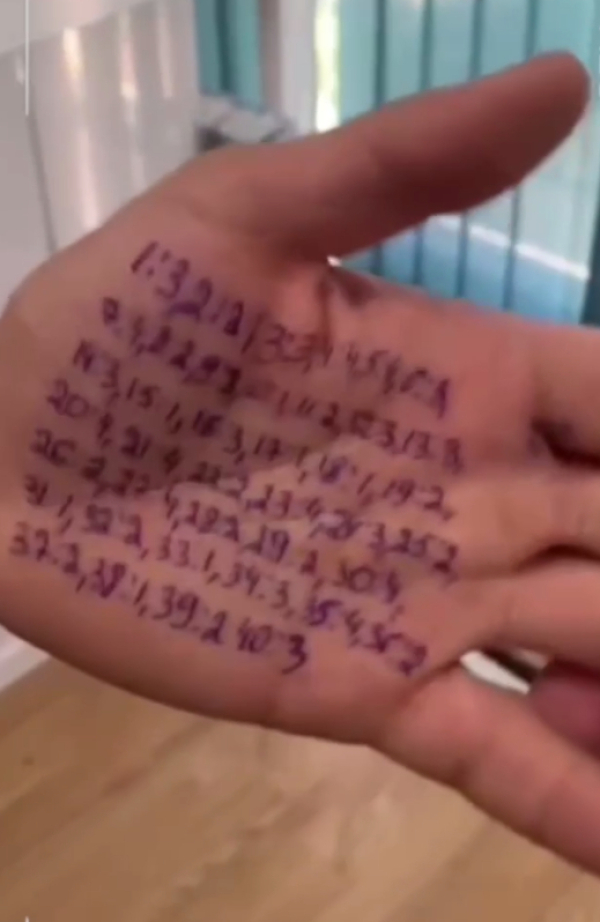 1:3,2:2,3:3,4 4,5 4,6:
7:4,8 2,9 1,11 2,12 3,13:3,
14:3,15 1,16 3,17 1,18:1,19:2,
20:4,21 4,22:2,23:4,24 3,25:2,
26:2,27 4,28:2,29:2,30:4,
31 1,32:2,33:1,34:3,35:4,36:2
37:2,38:1,39:2 40:3